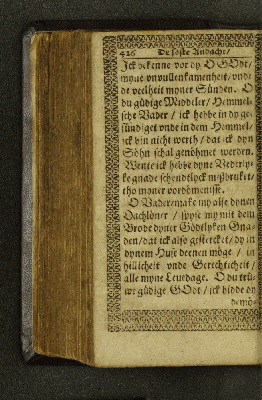 426 De söste Andacht/
Jck bekenne vor dy O GOdt/
myne vnvullenkamenheit/ vnde
de veelheit myner Sünden. O
du güdige Middeler/ Hemmel-
sche Vader / ick hebbe in dy ge-
sündiget vnde in dem Hemmel/
ick bin nicht werth / dat ick dyn
Söhn schal genöhmet werden.
Wente ick hebbe dyne
ke gnade schendtlyck mißbruket/
tho myner vordömenisse.
O Vader/make my alse dynen
Dachlöner / spyse my mit dem
Brode dyner Gödtlyken Gna-
den/dat ick also gestercket/dy in
dynem Huse deenen möge / in
hillicheit vnde Gerechticheit /
alle myne Levedage. O du trü-
we güdige GOdt / ick bidde dy